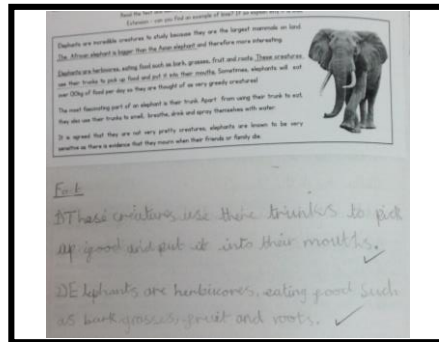 Read the text and
Extension – can you find an example of bias? If so explain why it is bias.
Elephants are incredible creatures to study because they are the largest mammals on land.
The African elephant is bigger than the Asian elephant and therefore more interesting.
Elephants are herbivores, eating food such as bark, grasses, fruit and roots. These creatures
use their trunks to pick up food and put it into their mouths. Sometimes, elephants will eat
over 130kg of food per day so they are thought of as very greedy creatures!
The most fascinating part of an elephant is their trunk. Apart from using their trunk to eat,
they also use their trunks to smell, breathe, drink and spray themselves with water.
It is agreed that they are not very pretty creatures, elephants are known to be very
sensitive as there is evidence that they mourn when their friends or family die.
Fact
1) These creatures use there trunks to pick
up food and put it into their mouths.
2) Elephants are herbivores, eating food such
as bark grasses, fruit and roots.